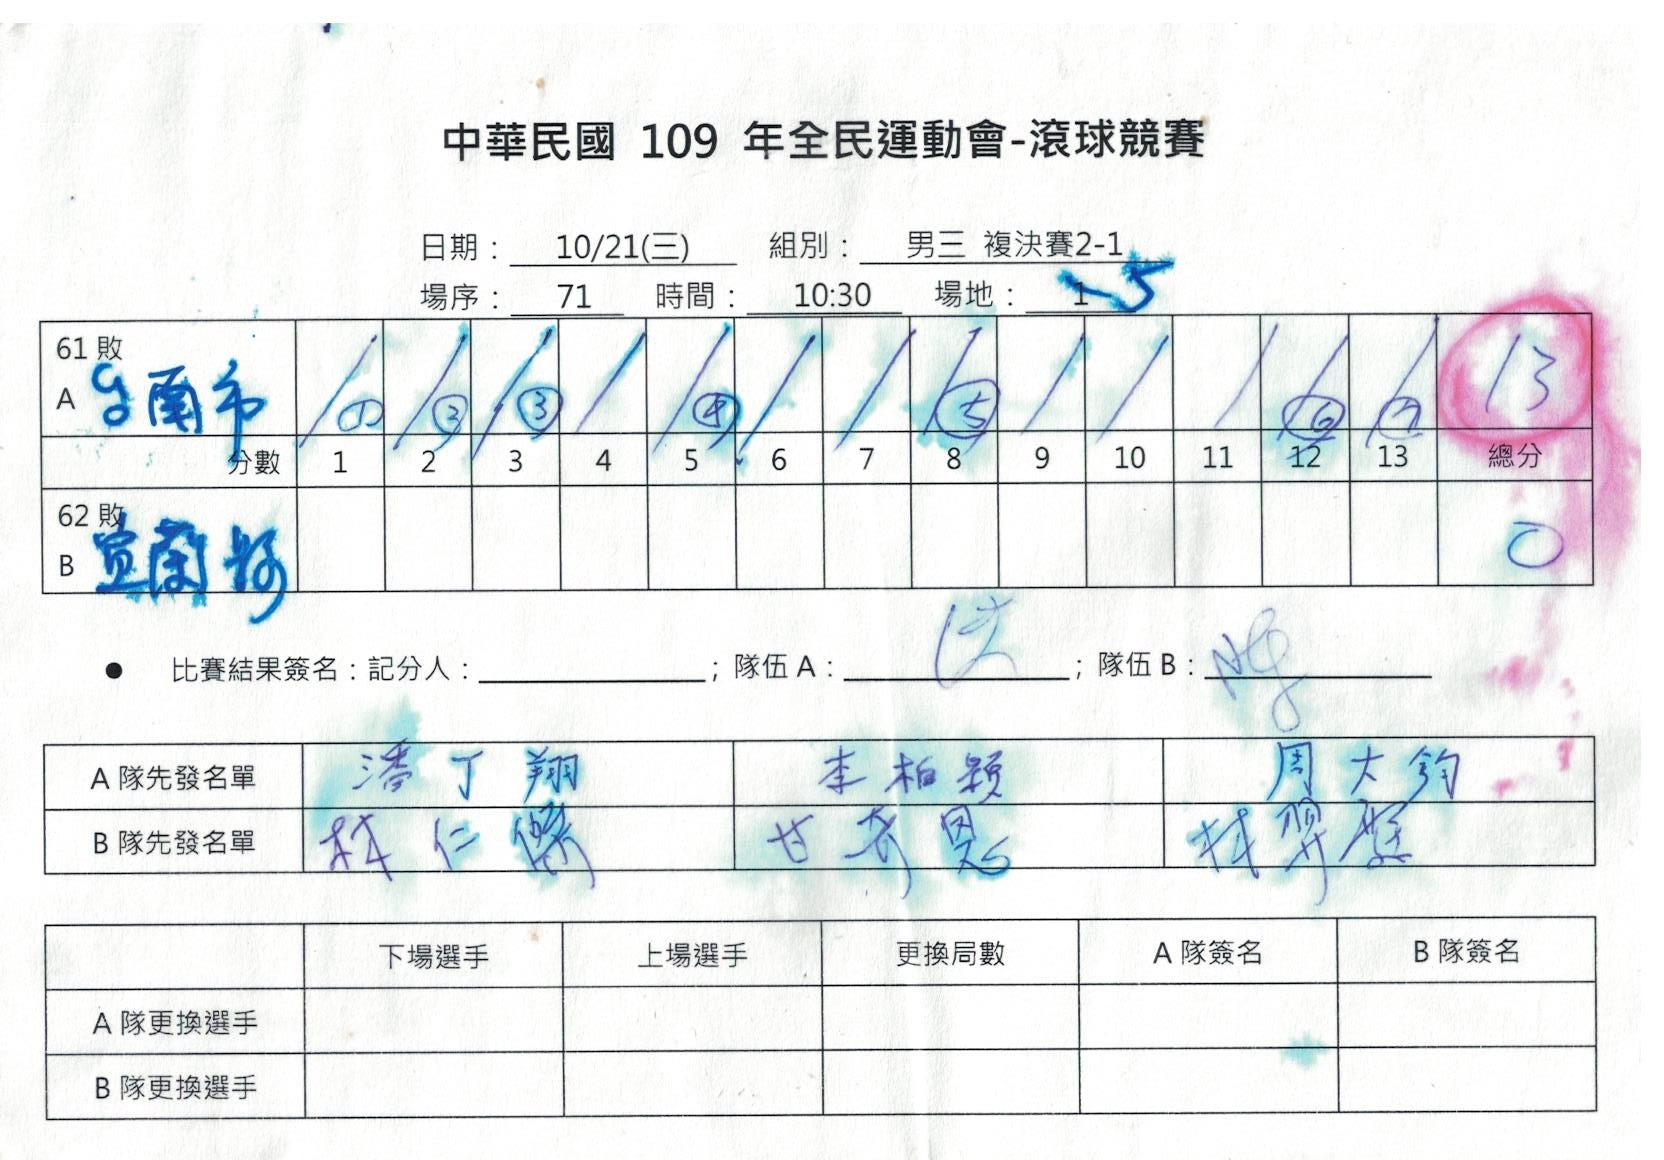 中華民國 109 年全民運動會-滾球競賽
日期： 10/21(三) 組別： 男三 複決賽2-1
場序： 71 時間： 10:30 場地： 1 5
61 敗
A 台南市 / ① / ② / ③ / / ④ / / / ⑤ / / / / ⑥ / ⑦ 13
分數 1 2 3 4 5 6 7 8 9 10 11 12 13 總分
62 敗
B 宜蘭縣 0
● 比賽結果簽名：記分人： ；隊伍 A： ；隊伍 B：
A 隊先發名單 潘丁翔 李柏穎 周大鈞
B 隊先發名單 林仁 甘 恩 林
下場選手 上場選手 更換局數 A 隊簽名 B 隊簽名
A 隊更換選手
B 隊更換選手